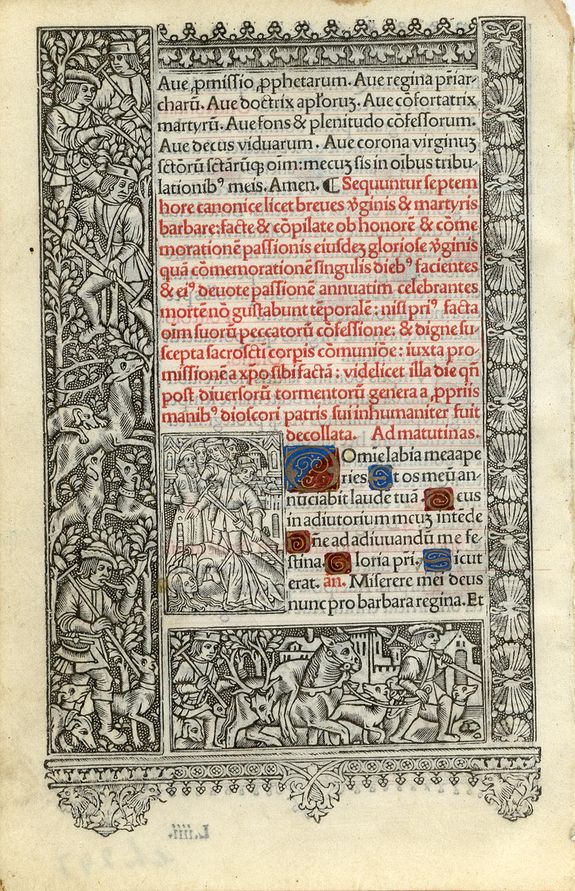 Aue ꝓmissio ꝓphetarum. Aue regina pr̄iar-
charū. Aue doctrix apl̄oruꝫ. Aue cōfortatrix
martyrū. Aue fons & plenitudo cōfessorum.
Aue decus viduarum. Aue corona virginuꝫ
sctōrū sctārūqꝫ oīm: mecuꝫ sis in oībus tribu-
lationibꝰ meis. Amen. ¶ Sequuntur septem
hore canonice licet breues ṽginis & martyris
barbare: facte & cōpilate ob honorē & cōme
morationē passionis eiusdeꝫ gloriose ṽginis
quā cōmemorationē singulis diebꝰ facientes
& eiꝰ deuote passionē annuatim celebrantes
mortē nō gustabunt tēporale: nisi priꝰ facta
oīm suorū peccatorū cōfessione: & digne su-
scepta sacrosctī corpis cōmunioē: iuxta pro-
missionē a xpo sibi factā: videlicet illa die qn̄
post diuersorū tormentorū genera a ꝓpriis
manibꝰ dioscori patris sui inhumaniter fuit
decollata. Ad matutinas.
Domie labia mea ape
ries. Et os meū an-
nūciabit laudē tuā. Deus
in adiutorium meuꝫ intēde
Dn̄e ad adiuuandū me fe-
stina. Gloria pr̄i. Sicut
erat. an. Miserere mei deus
nunc pro barbara regina. Et
L.iiii.